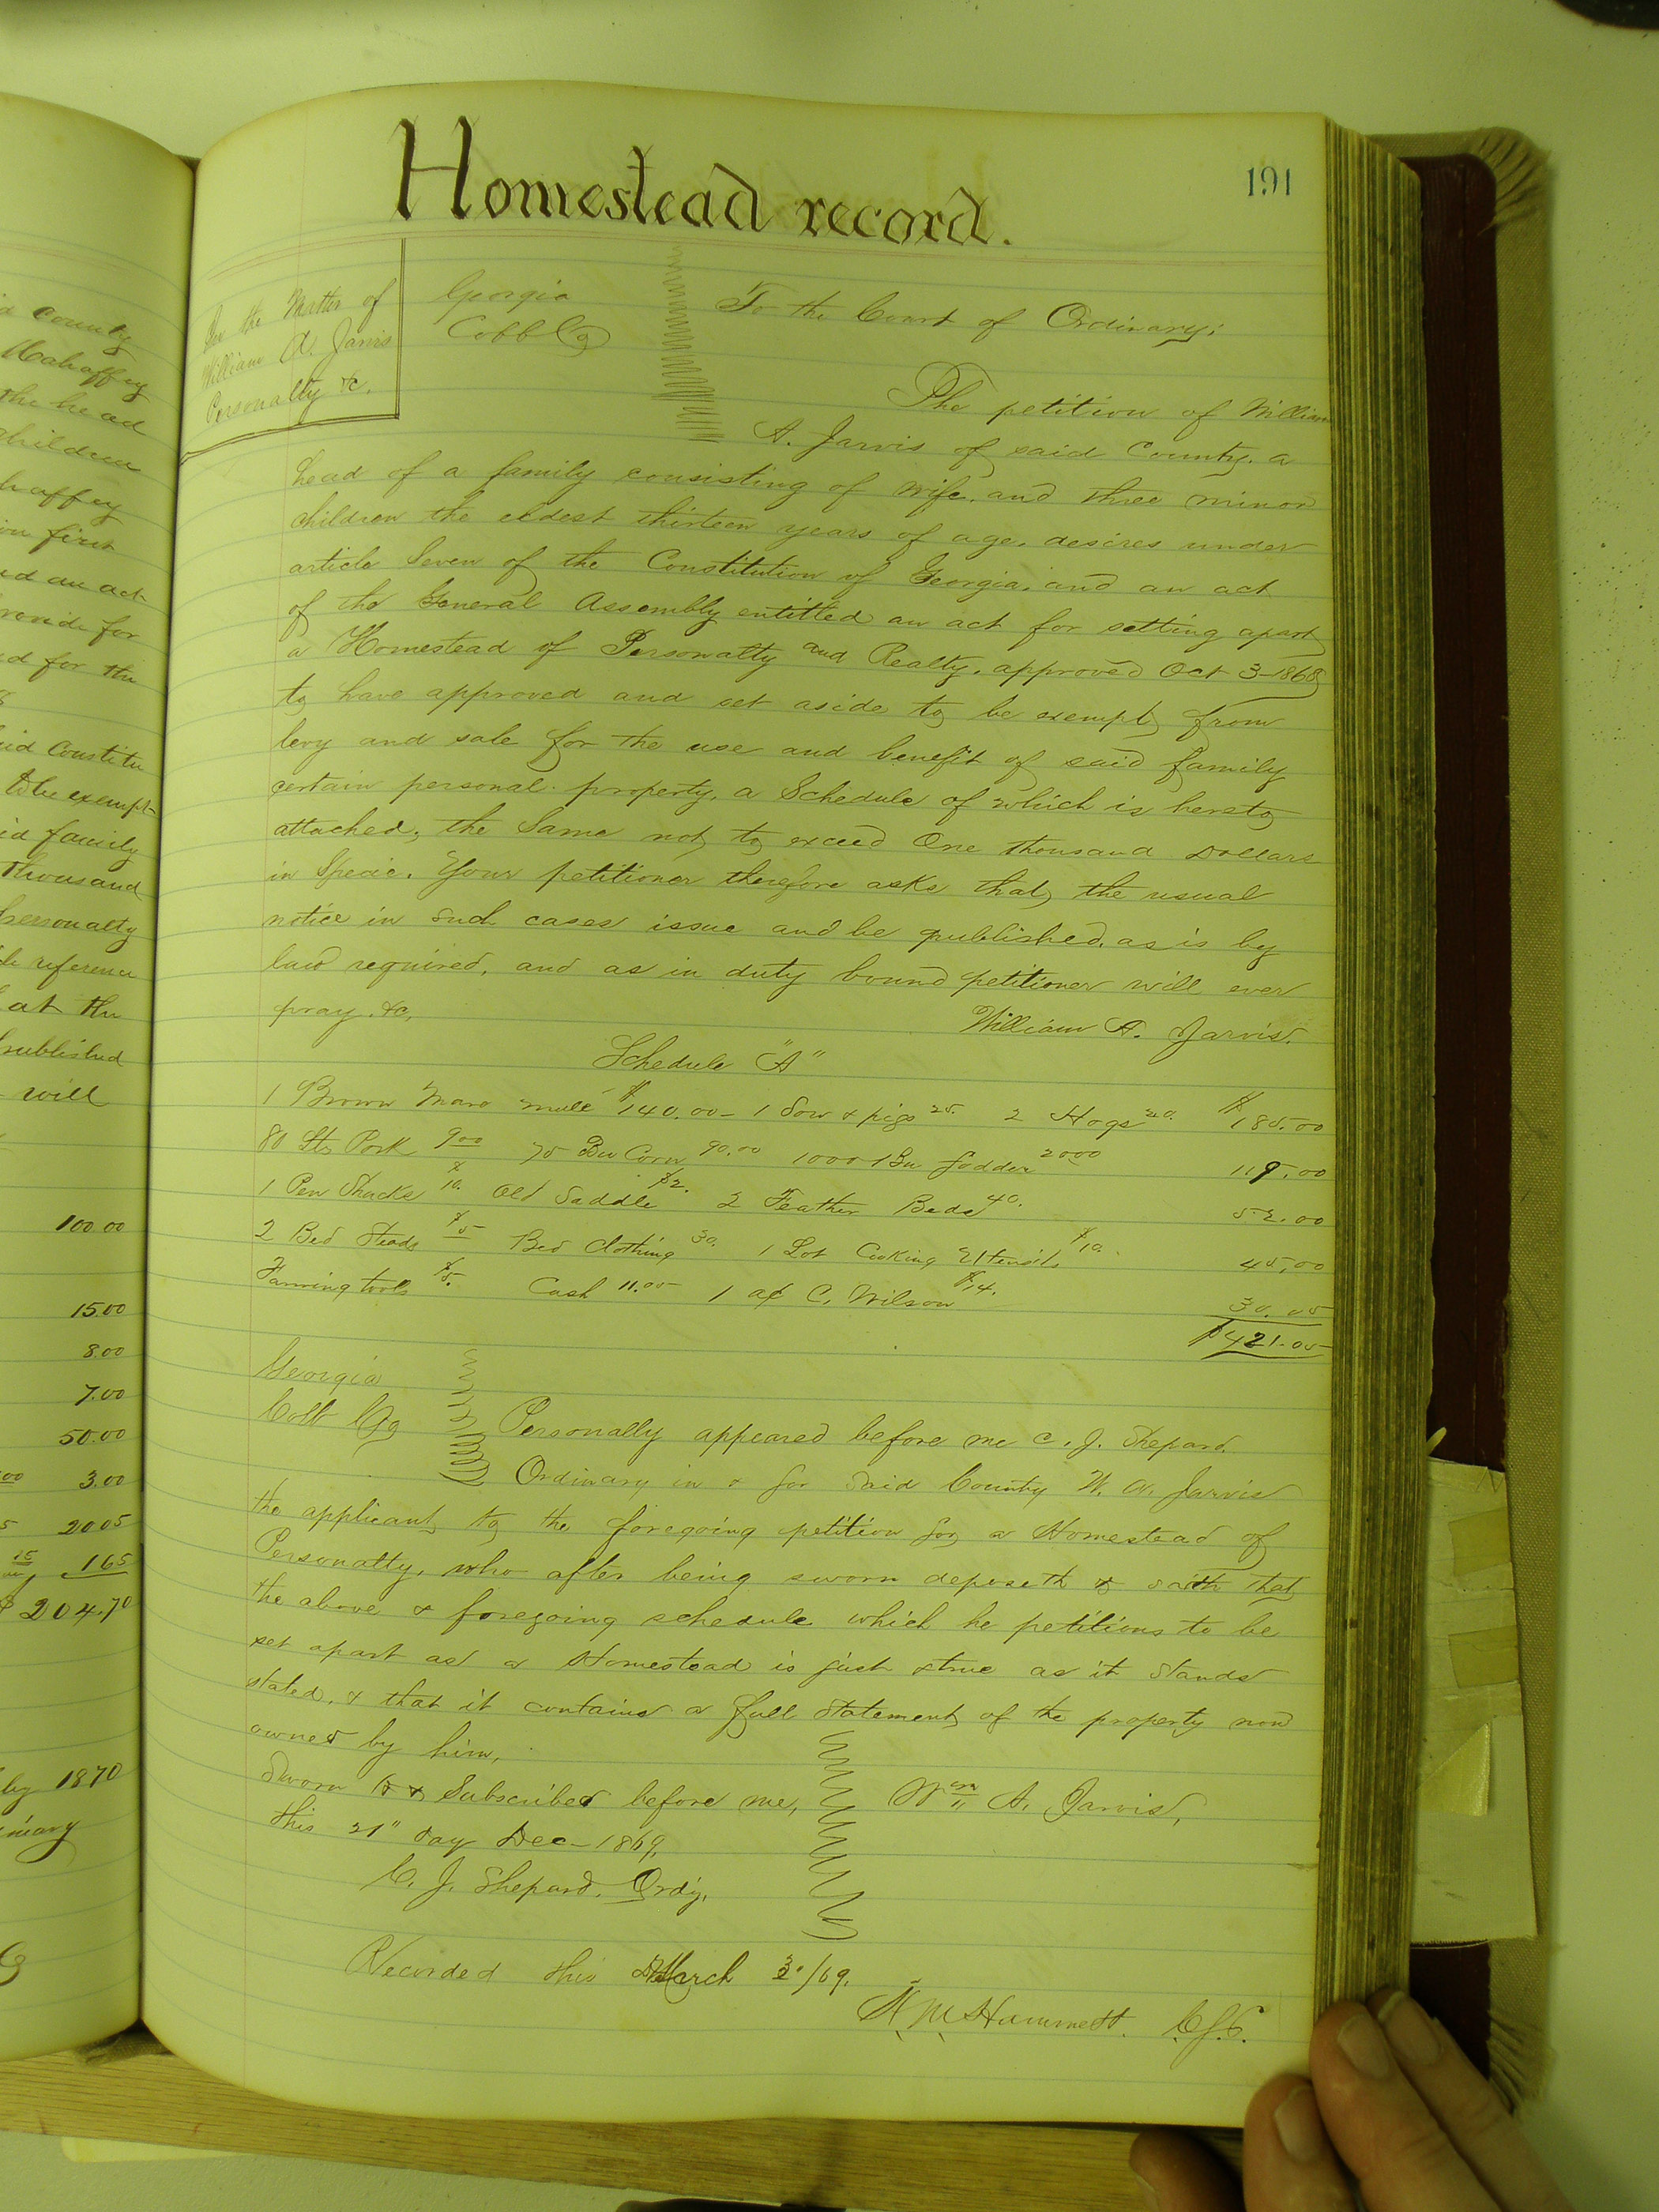 d county
Mahaffey
the head
children
haffey
on first
ed an act
rovide for
d for the
8
id Constitu
to be exempt
id family
thousand
personalty
reference
at the
published
will
100.00
15.00
8.00
7.00
50.00
3.00
20 05
1 65
$204.70
by 1870
inary
Homestead record.
191
In the Matter of
William A. Jarvis
Personalty &c.
Georgia
Cobb Co
To the Court of Ordinary;
The petition of William
A. Jarvis of said County, a
head of a family consisting of wife, and three minor
children the eldest thirteen years of age, desires under
article Seven of the Constitution of Georgia, and an act
of the General Assembly entitled an act for setting apart
a Homestead of Personalty and Realty, approved Oct 3-1868
to have approved and set aside to be exempt from
levy and sale for the use and benefit of said family
certain personal property, a Schedule of which is hereto
attached, the Same not to exceed One thousand Dollars
in Specie. Your petitioner therefore asks that the usual
notice in such cases issue and be published, as is by
law required, and as in duty bound petitioner will ever
pray. &c,
William A. Jarvis.
Schedule "A"
1 Brown Mare mule $140.00 - 1 Sow & pigs 25. 2 Hogs 20. $185.00
80 lbs Pork 9 00 75 Bu Corn 90.00 1000 Bu fodder 20 00 119.00
1 Pen Shucks $10. Old Saddle $2. 2 Feather Beds 40. 52.00
2 Bed Steads $5 Bed Clothing 30. 1 Lot Cooking Utensils $10. 45,00
Farming tools $5. Cash 11.05 1 a/c C. Wilson $14. 30.05
$421.05
Georgia
Cobb Co
Personally appeared before me C. J. Shepard.
Ordinary in & for Said County W. A. Jarvis
the applicant to the foregoing petition for a Homestead of
Personalty, who after being sworn deposeth & saith that
the above & foregoing schedule which he petitions to be
set apart as a Homestead is just & true as it stands
stated, & that it contains a full Statement of the property now
owned by him,
Sworn to & Subscribed before me,
Wm A. Jarvis,
this 21" day Dec- 1869,
C. J. Shepard. Ordy.
Recorded this March /69.
N. M Hammett. C.S.C.